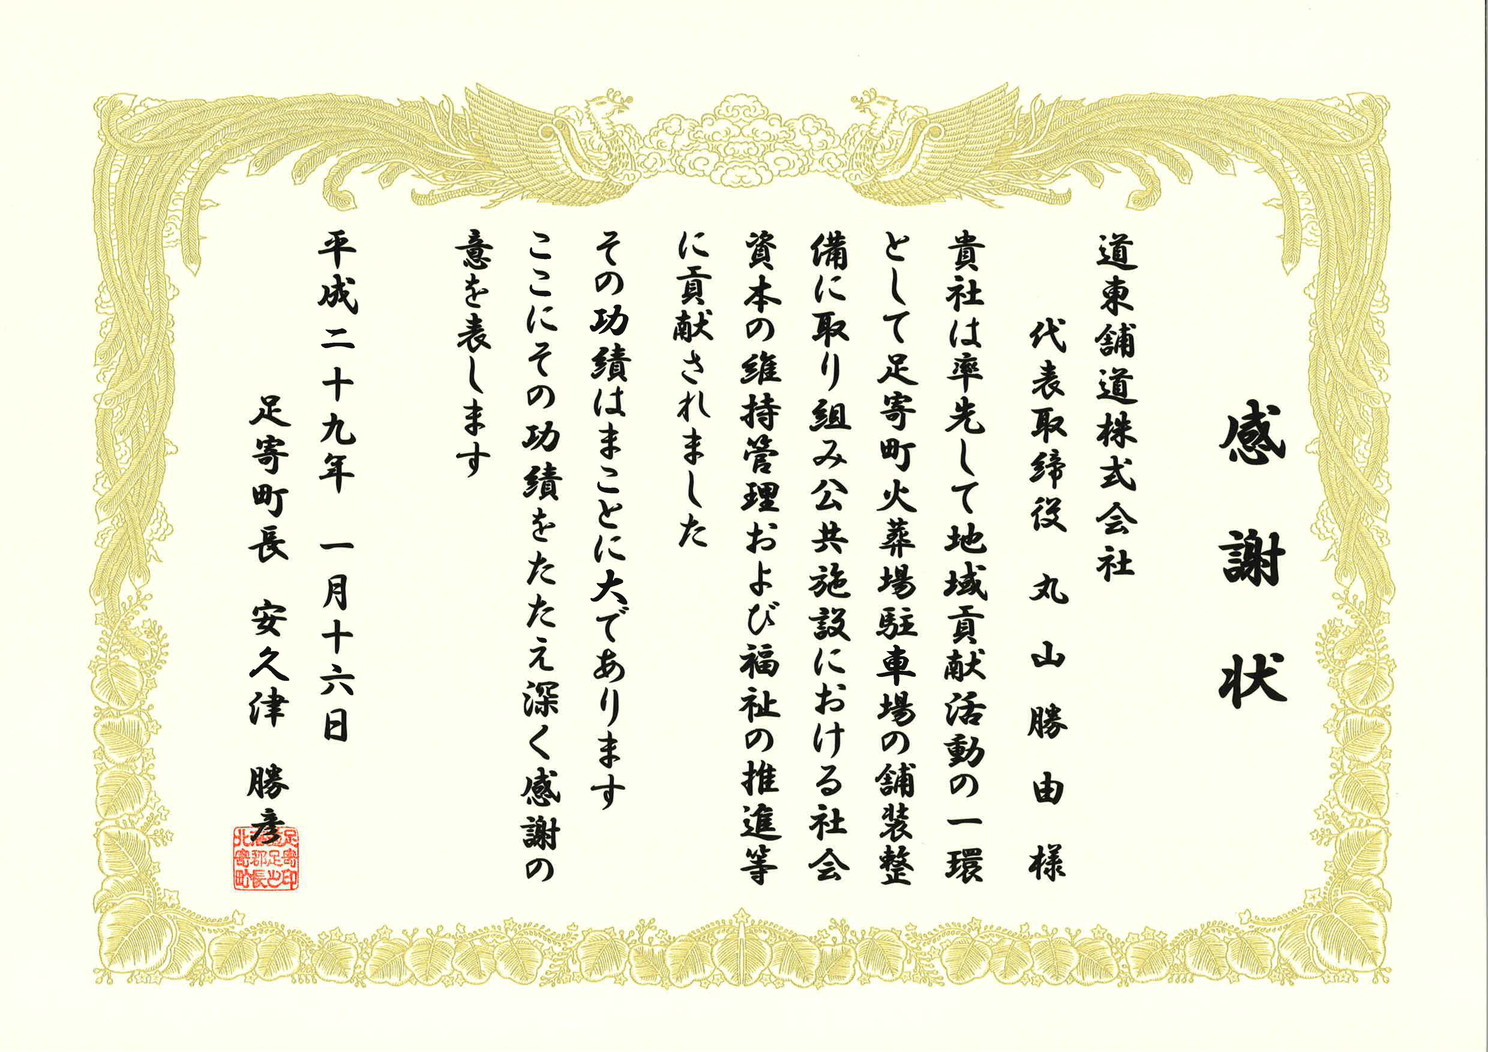 感謝状
道東舗道株式会社
代表取締役 丸山勝由様
貴社は率先して地域貢献活動の一環
として足寄町火葬場駐車場の舗装整
備に取り組み公共施設における社会
資本の維持管理および福祉の推進等
に貢献されました
その功績はまことに大であります
ここにその功績をたたえ深く感謝の
意を表します
平成二十九年 一月十六日
足寄町長 安久津 勝彦